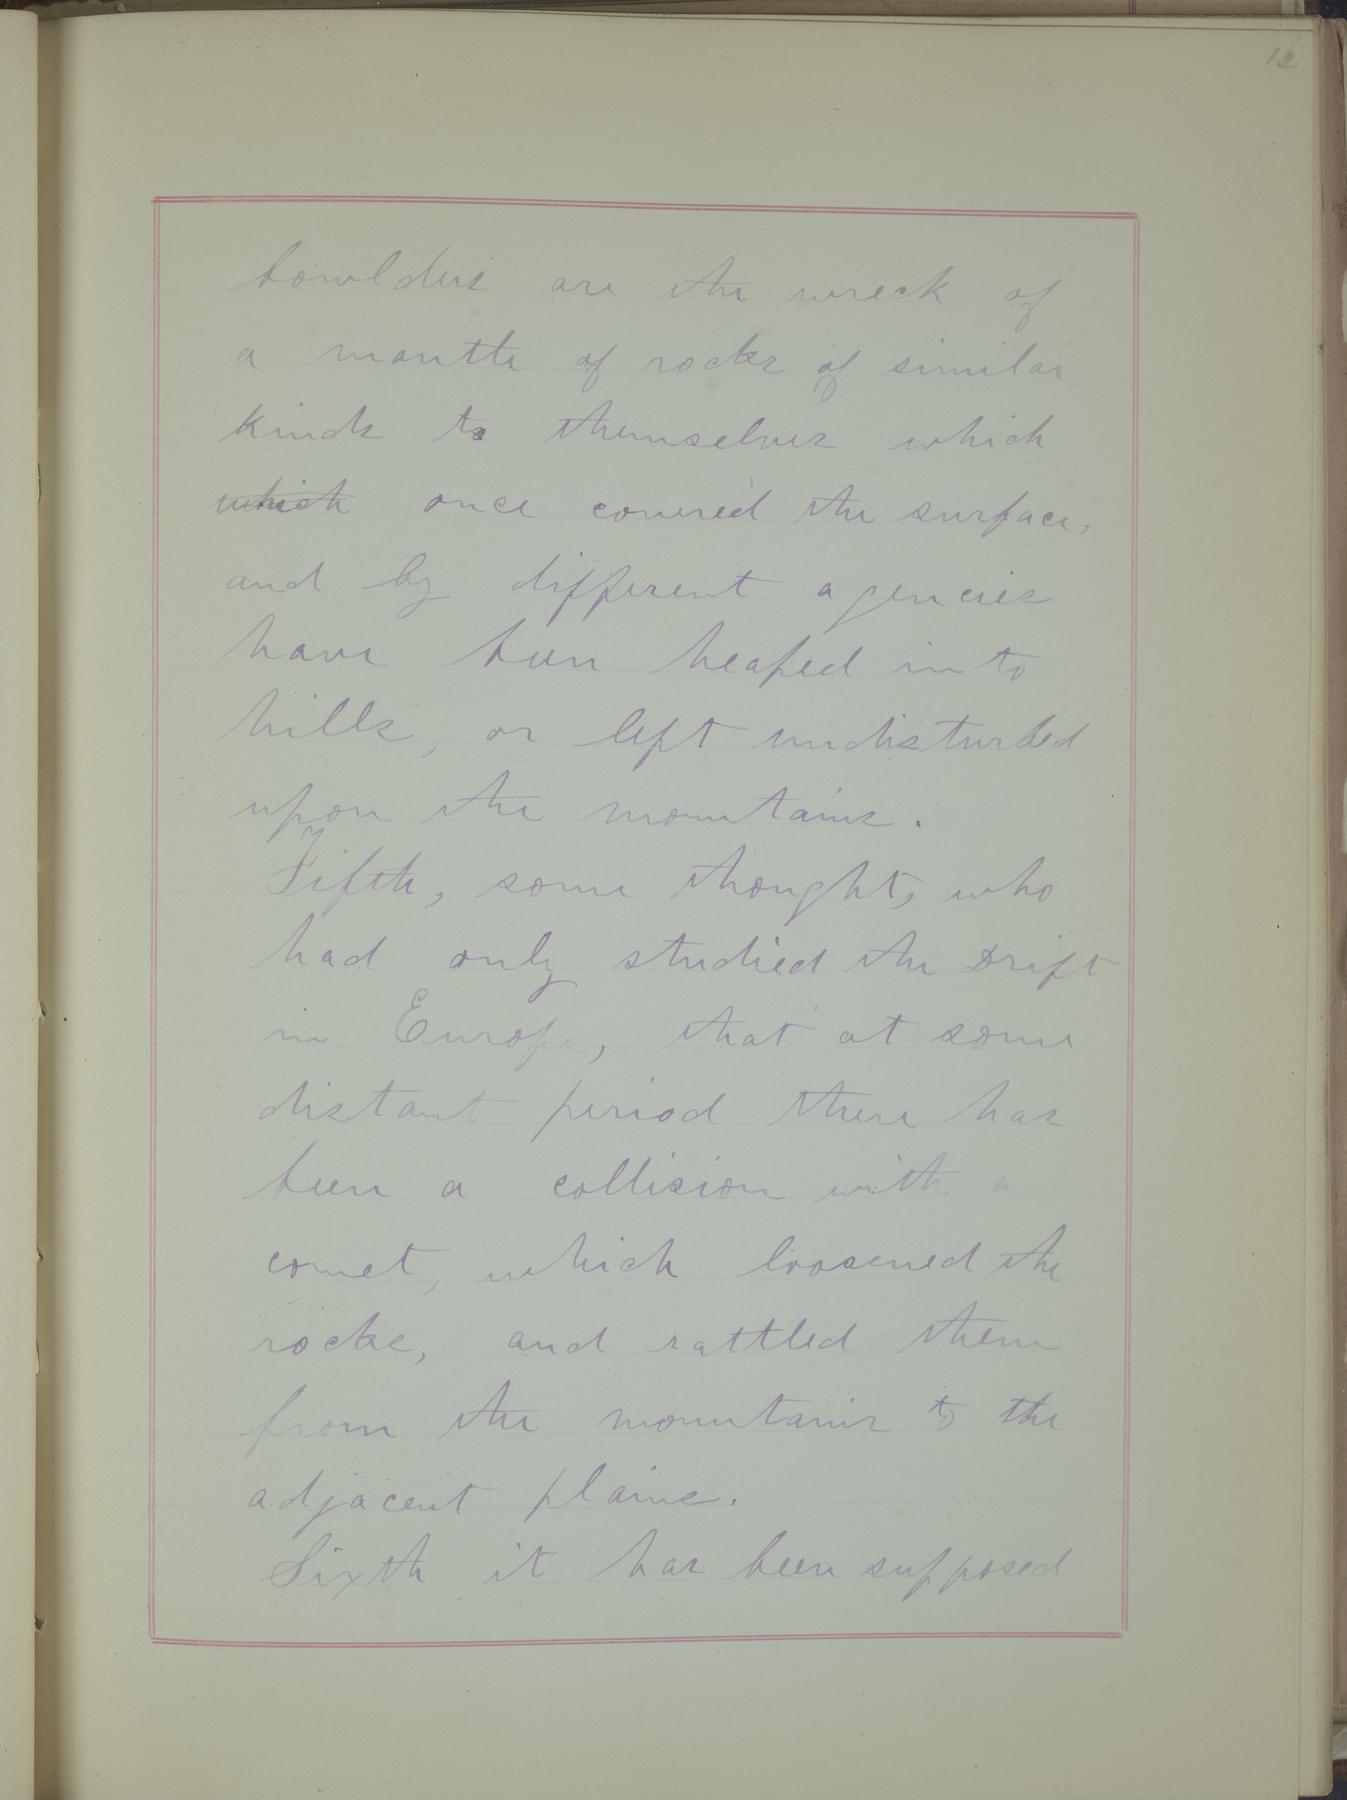 12
bowlders are the wreck of
a mantle of rocks of similar
kinds to themselves which
which once covered the surface,
and by different agencies
have been heaped into
hills, or left undisturbed
upon the mountains.
Fifth, some thought, who
had only studied the Drift
in Europe, that at some
distant period there has
been a collision with a
comet, which loosened the
rocks, and rattled them
from the mountains to the
adjacent plains.
Sixth it has been supposed